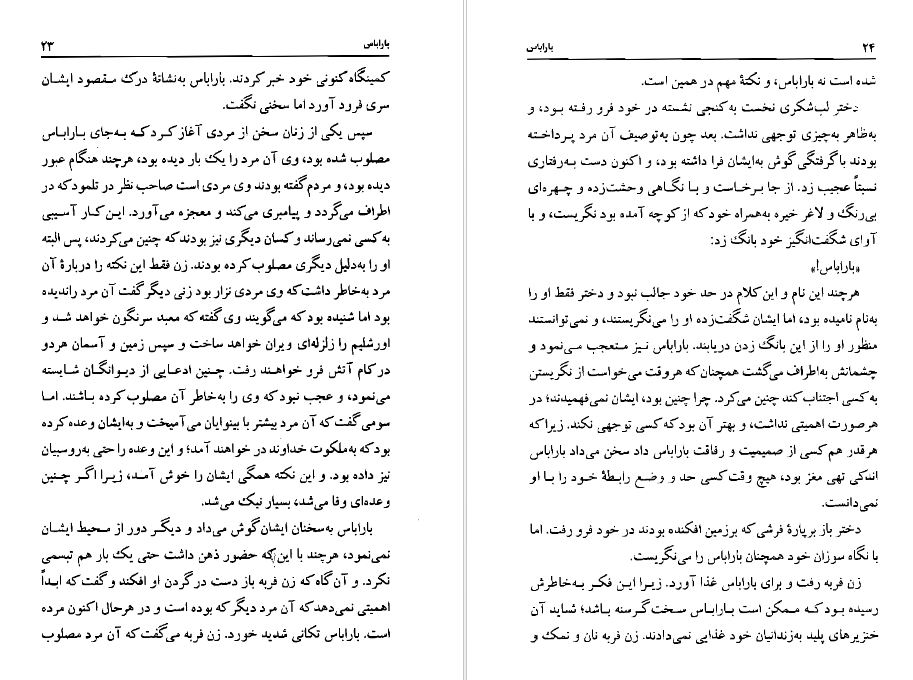 باراباس ۲۳
کمینگاه کنونی خود خبر کردند. باراباس به‌نشانهٔ درک مقصود ایشان
سری فرود آورد اما سخنی نگفت.
سپس یکی از زنان سخن از مردی آغاز کرد که به‌جای باراباس
مصلوب شده بود، وی آن مرد را یک بار دیده بود، هرچند هنگام عبور
دیده بود، و مردم گفته بودند وی مردی است صاحب نظر در تلمود که در
اطراف می‌گردد و پیامبری می‌کند و معجزه می‌آورد. این کار آسیبی
به کسی نمی‌رساند و کسان دیگری نیز بودند که چنین می‌کردند، پس البته
او را به‌دلیل دیگری مصلوب کرده بودند. زن فقط این نکته را دربارهٔ آن
مرد به‌خاطر داشت که وی مردی نزار بود زنی دیگر گفت آن مرد راندیده
بود اما شنیده بود که می‌گویند وی گفته که معبد سرنگون خواهد شد و
اورشلیم را زلزله‌ای ویران خواهد ساخت و سپس زمین و آسمان هردو
در کام آتش فرو خواهند رفت. چنین ادعایی از دیوانگان شایسته
می‌نمود، و عجب نبود که وی را به‌خاطر آن مصلوب کرده باشند. اما
سومی گفت که آن مرد بیشتر با بینوایان می‌آمیخت و به‌ایشان وعده کرده
بود که به‌ملکوت خداوند در خواهند آمد؛ و این وعده را حتی به‌روسبیان
نیز داده بود. و این نکته همگی ایشان را خوش آمد، زیرا اگر چنین
وعده‌ای وفا می‌شد، بسیار نیک می‌شد.
باراباس به‌سخنان ایشان گوش می‌داد و دیگر دور از محیط ایشان
نمی‌نمود، هرچند با این‌که حضور ذهن داشت حتی یک بار هم تبسمی
نکرد. و آن گاه که زن فربه باز دست در گردن او افکند و گفت که ابداً
اهمیتی نمی‌دهد که آن مرد دیگر که بوده است و در هرحال اکنون مرده
است. باراباس تکانی شدید خورد. زن فربه می‌گفت که آن مرد مصلوب
۲۴ باراباس
شده است نه باراباس، و نکتهٔ مهم در همین است.
دختر لب‌شکری نخست به‌کنجی نشسته در خود فرو رفته بود، و
به‌ظاهر به‌چیزی توجهی نداشت. بعد چون به‌توصیف آن مرد پرداخته
بودند باگرفتگی گوش به‌ایشان فرا داشته بود، و اکنون دست به‌رفتاری
نسبتاً عجیب زد. از جا برخاست و با نگاهی وحشت‌زده و چهره‌ای
بی‌رنگ و لاغر خیره به‌همراه خود که از کوچه آمده بود نگریست، و با
آوای شگفت‌انگیز خود بانگ زد:
«باراباس!»
هرچند این نام و این کلام در حد خود جالب نبود و دختر فقط او را
به‌نام نامیده بود، اما ایشان شگفت‌زده او را می‌نگریستند، و نمی‌توانستند
منظور او را از این بانگ زدن دریابند. باراباس نیز متعجب می‌نمود و
چشمانش به‌اطراف می‌گشت همچنان که هروقت می‌خواست از نگریستن
به کسی اجتناب کند چنین می‌کرد. چرا چنین بود، ایشان نمی‌فهمیدند؛ در
هرصورت اهمیتی نداشت، و بهتر آن بود که کسی توجهی نکند. زیرا که
هرقدر هم کسی از صمیمیت و رفاقت باراباس داد سخن می‌داد باراباس
اندکی تهی مغز بود، هیچ وقت کسی حد و وضع رابطهٔ خود را با او
نمی‌دانست.
دختر باز برپارهٔ فرشی که برزمین افکنده بودند در خود فرو رفت. اما
با نگاه سوزان خود همچنان باراباس را می‌نگریست.
زن فربه رفت و برای باراباس غذا آورد. زیرا این فکر به‌خاطرش
رسیده بود که ممکن است باراباس سخت گرسنه باشد؛ شاید آن
خنزیرهای پلید به‌زندانیان خود غذایی نمی‌دادند. زن فربه نان و نمک و